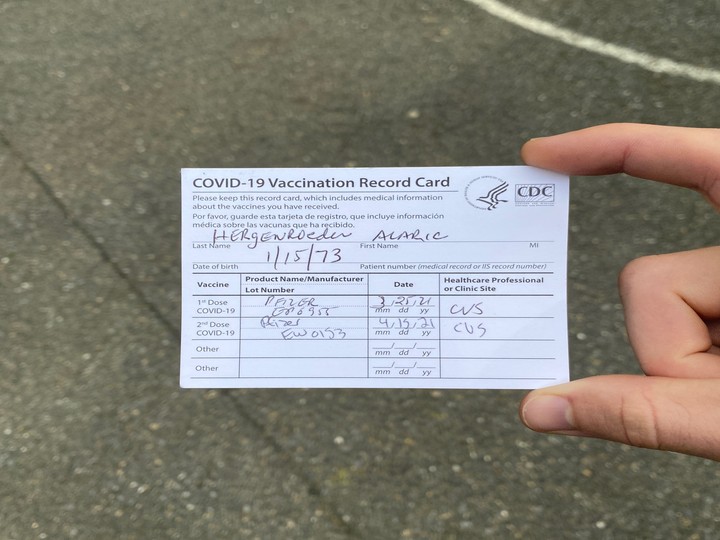 COVID-19 Vaccination Record Card
Please keep this record card, which includes medical information
about the vaccines you have received.
Por favor, guarde esta tarjeta de registro, que incluye información
médica sobre las vacunas que ha recibido.
CDC
HERgENRoeder ALARIC
Last Name First Name MI
1/15/73
Date of birth Patient number (medical record or IIS record number)
Vaccine Product Name/Manufacturer Date Healthcare Professional
Lot Number or Clinic Site
1st Dose PFIZER 3/25/21 CVS
COVID-19 mm dd yy
2nd Dose Pfizer 4/15/21 CVS
COVID-19 EW0153 mm dd yy
Other / /
mm dd yy
Other / /
mm dd yy